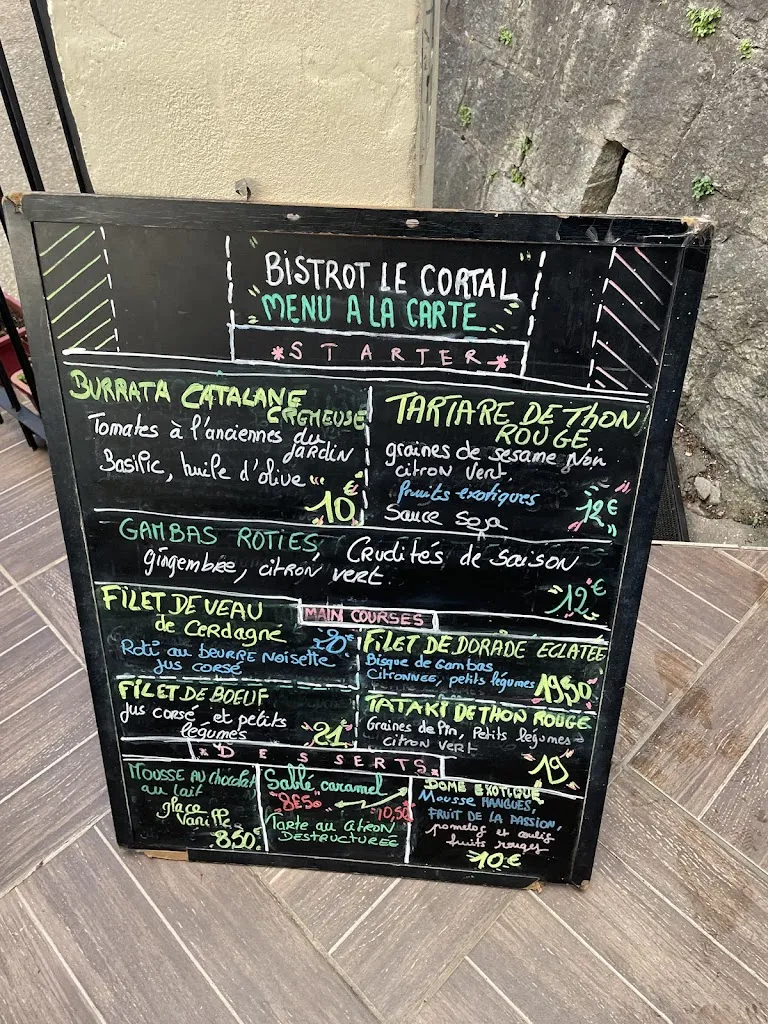 BISTROT LE CORTAL
MENU A LA CARTE
*STARTER*
BURRATA CATALANE
CREMEUSE
Tomates à l'anciennes du
JARDIN
Basilic, huile d'olive
10€
TARTARE DE THON
ROUGE
graines de sesame Noir
citron vert,
fruits exotiques
Sauce Soja
12€
GAMBAS ROTIES, Crudités de saison
gingembre, citron vert
12€
MAIN COURSES
FILET DE VEAU
de Cerdagne
Roti au beurre Noisette
jus corsé
20€
FILET DE DORADE ECLATEE
Bisque de Gambas
Citronnee, petits légumes
19,50€
FILET DE BOEUF
Jus corsé et petits
légumes
21€
TATAKI DE THON ROUGE
Graines de Pin, Petits légumes
citron vert
19€
*DESSERTS*
MOUSSE AU Chocolat
au lait
glace
Vanille
8,50€
Sablé caramel
8€50
10,50€
Tarte au citron
DESTRUCTUREE
DOME EXOTIQUE
Mousse MANGUES,
FRUIT DE LA PASSION,
pomelos et coulis
fruits rouges
10€